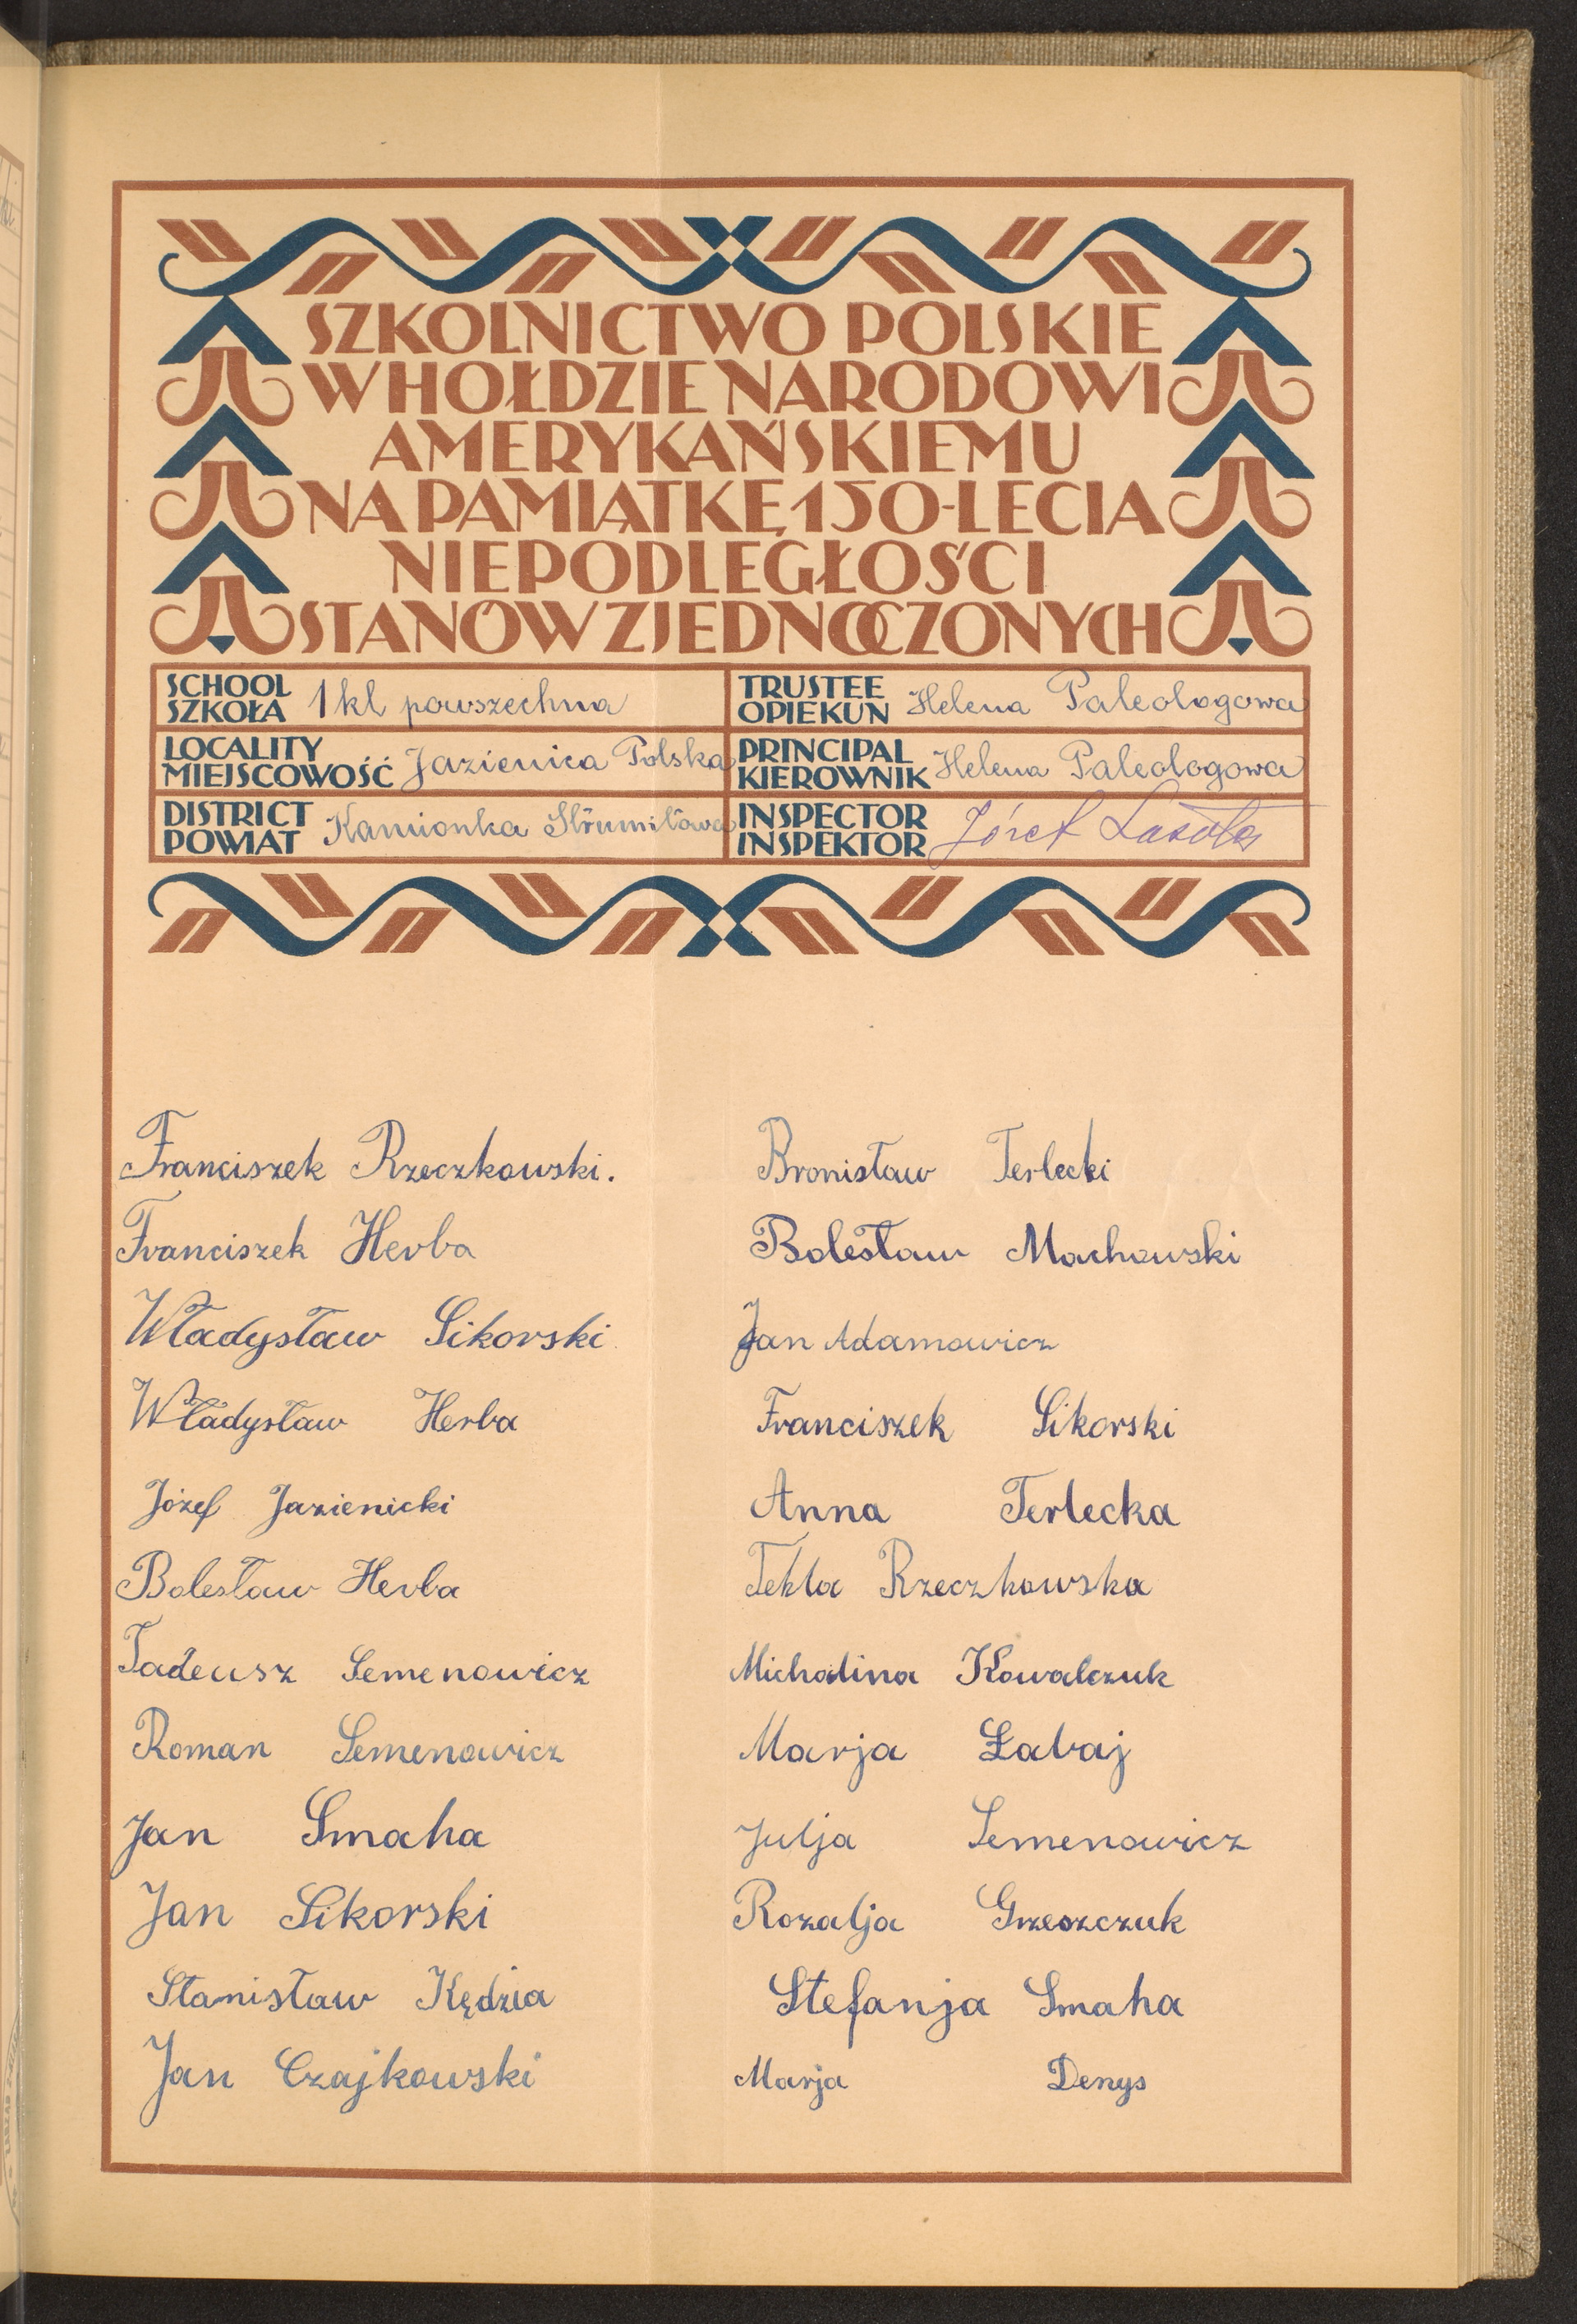 SZKOLNICTWO POLSKIE
W HOŁDZIE NARODOWI
AMERYKAŃSKIEMU
NA PAMIĄTKĘ 150-LECIA
NIEPODLEGŁOŚCI
STANÓW ZJEDNOCZONYCH
SCHOOL SZKOŁA 1 kl powszechna
TRUSTEE OPIEKUN Helena Paleologowa
LOCALITY MIEJSCOWOŚĆ Jazienica Polska
PRINCIPAL KIEROWNIK Helena Paleologowa
DISTRICT POWIAT Kamionka Strumiłowa
INSPECTOR INSPEKTOR Józef Lasota
Franciszek Rzeczkowski.
Franciszek Herba
Władysław Sikorski
Władysław Herba
Józef Jazienicki
Bolesław Herba
Tadeusz Semenowicz
Roman Semenowicz
Jan Smaha
Jan Sikorski
Stanisław Kędzia
Jan Czajkowski
Bronisław Terlecki
Bolesław Machowski
Jan Adamowicz
Franciszek Sikorski
Anna Terlecka
Tekla Rzeczkowska
Michalina Kowalczuk
Marja Łabaj
Julja Semenowicz
Rozalja Grzeszczuk
Stefanja Smaha
Marja Denys